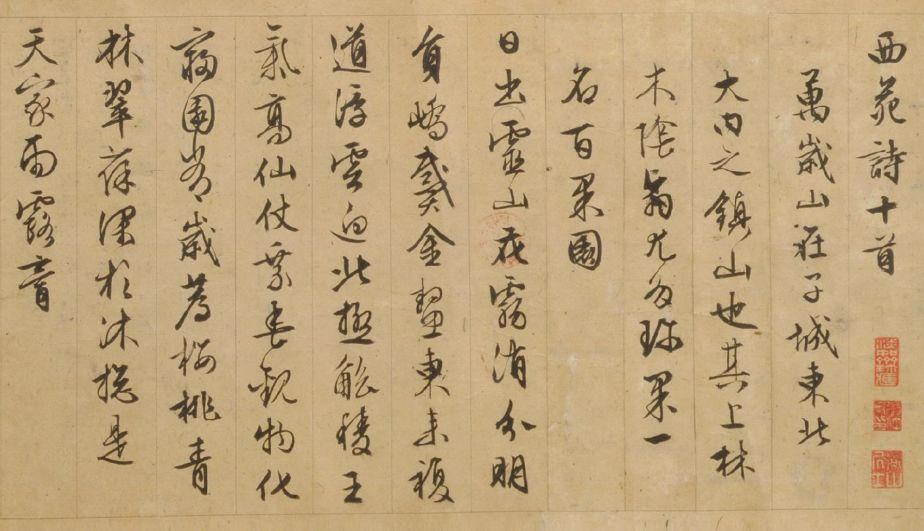 西苑詩十首
萬歲山在子城東北
大內之鎮山也其上林
木陰翳尤多珍果一
名百果園
日出靈山花霧消分明
員嶠戴金鰲東來複
道浮雲迥北極觚稜王
氣高仙仗乘春觀物化
寢園常歲薦櫻桃青
林翠葆深於沐總是
天家雨露膏